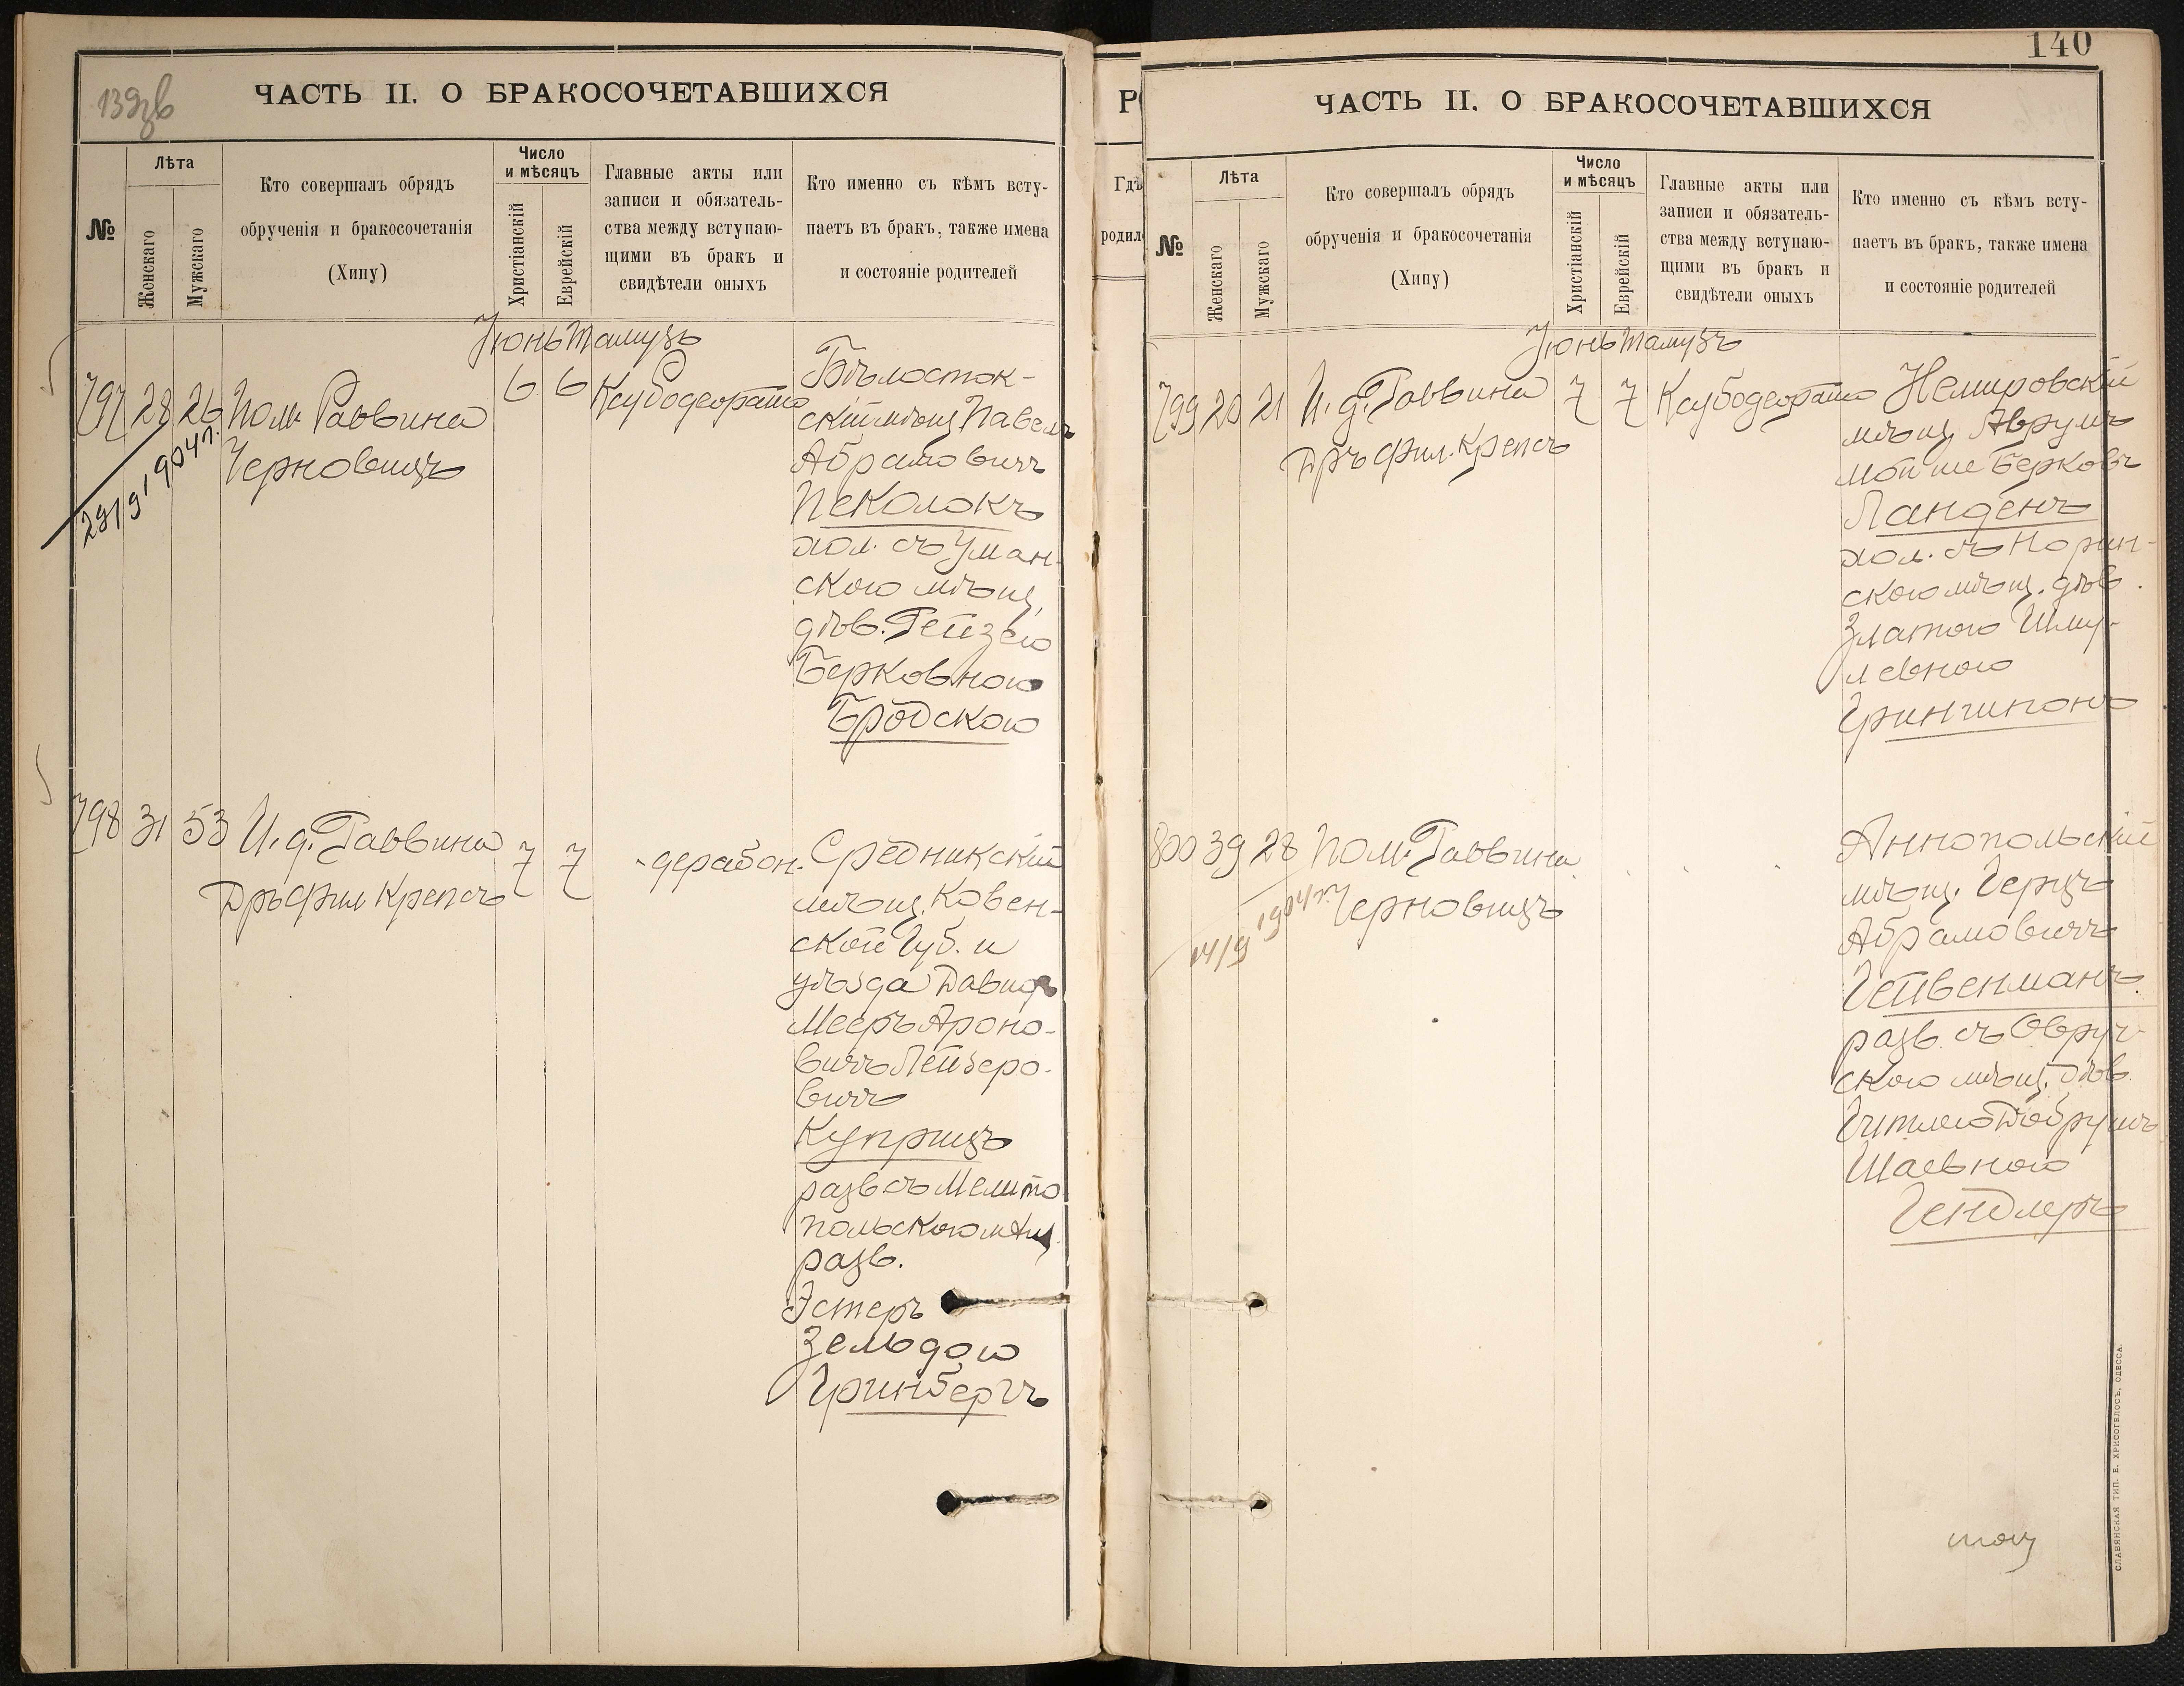 139зв
ЧАСТЬ II. О БРАКОСОЧЕТАВШИХСЯ
№
Лѣта
Женскаго
Мужскаго
Кто совершалъ обрядъ
обрученія и бракосочетанія
(Хипу)
Число
и мѣсяцъ
Христіанскій
Еврейскій
Главные акты или
записи и обязатель-
ства между вступаю-
щими въ бракъ и
свидѣтели оныхъ
Кто именно съ кѣмъ всту-
паетъ въ бракъ, также имена
и состояніе родителей
Іюнь Тамузъ
797 28 26 Пом. Раввина
Черновицъ
29/9 1904 г.
6 6 Ксубодеорато
Бѣлосток-
скій мѣщ Павелъ
Абрамовичъ
Пеколокъ
хол. съ Уман-
скою мѣщ,
дѣв. Рейзею
Берковною
Бродскою
798 31 53 И. д. Раввина
Дръ Фил Крепсъ
7 7 -дерабон.
Средникскій
мѣщ. Ковен-
ской Губ. и
уѣзда Давид
Мееръ Ароно-
вичъ Лейзеро-
вичъ
Куприцъ
разв съ Мелито
польскою мѣщ.
разв.
Эстеръ
Зельдою
Гринбергъ
140
ЧАСТЬ II. О БРАКОСОЧЕТАВШИХСЯ
№
Лѣта
Женскаго
Мужскаго
Кто совершалъ обрядъ
обрученія и бракосочетанія
(Хипу)
Число
и мѣсяцъ
Христіанскій
Еврейскій
Главные акты или
записи и обязатель-
ства между вступаю-
щими въ бракъ и
свидѣтели оныхъ
Кто именно съ кѣмъ всту-
паетъ въ бракъ, также имена
и состояніе родителей
Іюнь Тамузъ
799 20 21 И. д. Раввина
Дръ Фил. Крепсъ
7 7 Ксубодеорато
Немировскій
мѣщ Аврумъ
Мойше Берковъ
Ланденъ
хол. съ Норин-
скою мѣщ. дѣв.
Златою Шму-
левною
Грингипонъ
800 39 28 Пом. Раввина
Черновицъ
14/9 1904 г.
Аннопольскій
мѣщ. Герцъ
Абрамовичъ
Гейвенманъ
разв. съ Овруч-
скою мѣщ. дѣв.
Гитлею Добрушъ
Шаевною
Гендлеръ
СЛАВЯНСКАЯ ТИП. Е. ХРИСОГЕЛОСЪ, ОДЕССА.